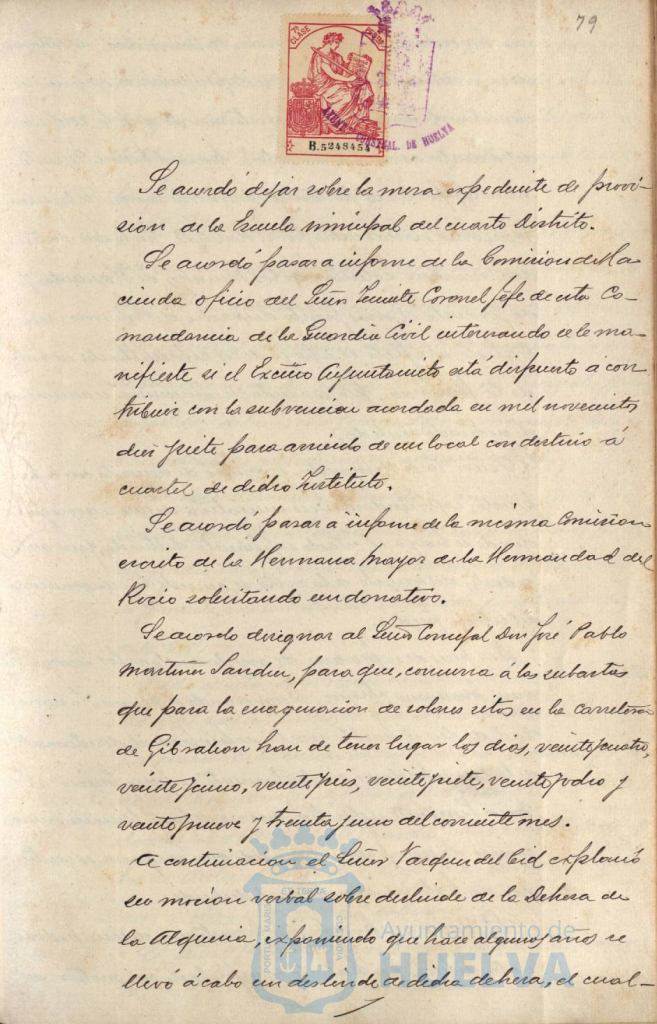 79
7ª CLASE
B.5248454
AYUNT. CONSTNAL. DE HUELVA
Se acordó dejar sobre la mesa expediente de provi-
sion de la Escuela municipal del cuarto Distrito.
Se acordó pasar a informe de la Comision de Ha
cienda oficio del Señor Teniente Coronel Jefe de esta Co-
mandancia de la Guardia Civil interesando se le ma-
nifieste si el Excmo Ayuntamiento está dispuesto á con
tribuir con la subvencion acordada en mil novecientos
diez y siete para arriendo de un local con destino á
cuartel de dicho Instituto.
Se acordó pasar a informe de la misma Comision
escrito de la Hermana Mayor de la Hermandad del
Rocio solicitando un donativo.
Se acordo designar al Señor Concejal Don José Pablo
Martinez Sanchez, para que, concurra á las subastas
que para la enagenacion de solares sitos en la carretera
de Gibraleon han de tener lugar los dias, veinte y cuatro,
veinte y cinco, veinte y seis, veinte y siete, veinte y ocho y
veinte y nueve y treinta y uno del corriente mes.
A continuacion el Señor Vazquez del Cid explanó
su mocion verbal sobre deslinde de la Dehesa de
la Alqueria, exponiendo que hace algunos años se
llevó á cabo un deslinde de dicha dehesa, el cual-
Ayuntamiento de
HUELVA